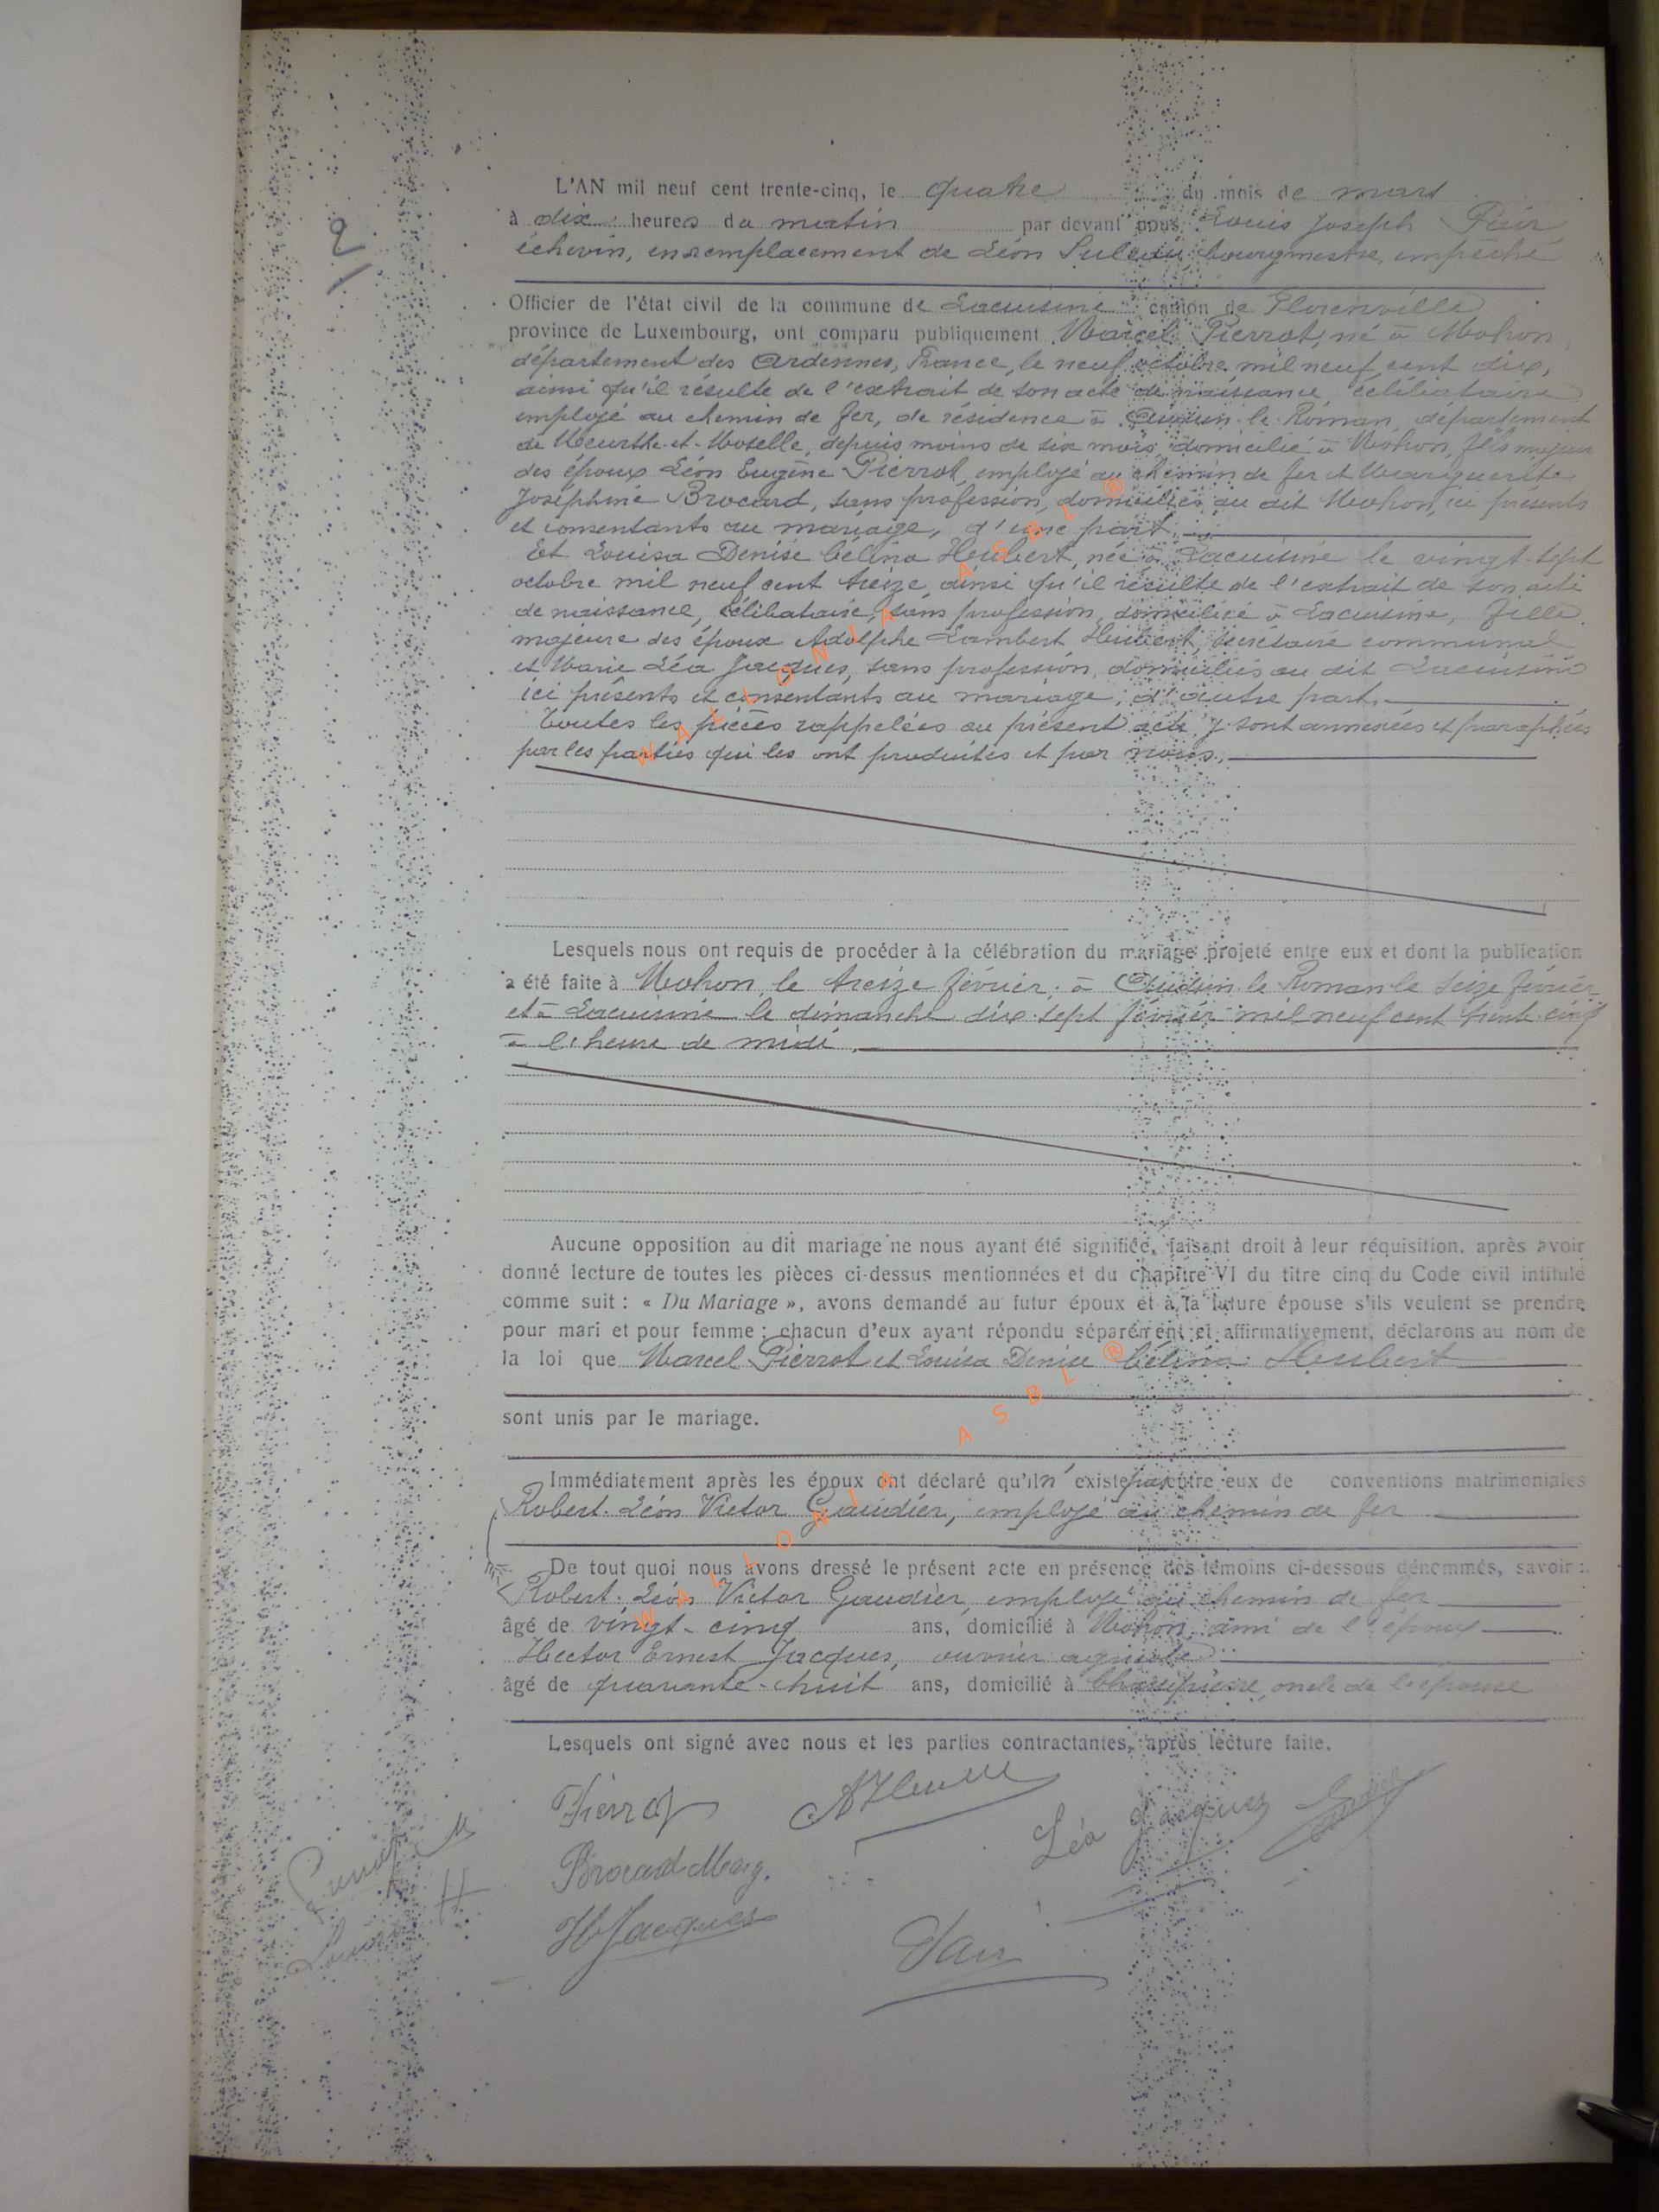 2/
L'AN mil neuf cent trente-cinq, le quatre du mois de mars
à dix heures du matin par devant nous Louis Joseph
échevin, en remplacement de Léon bourgmestre, empêché
Officier de l'état civil de la commune de Lacuisine canton de Florenville
province de Luxembourg, ont comparu publiquement Marcel Pierrot, né à Mohon,
département des Ardennes, France, le neuf octobre mil neuf cent dix,
ainsi qu'il résulte de l'extrait de son acte de naissance, célibataire
employé au chemin de fer, de résidence à Audun-le-Roman, département
de Meurthe-et-Moselle, depuis moins de six mois, domicilié à Mohon, fils majeur
des époux Léon Eugène Pierrot, employé au chemin de fer et Marguerite
Joséphine Brocard, sans profession, domiciliés au dit Mohon, ici présents
et consentants au mariage, d'une part.
Et Louisa Denise Célina Hubert, née à Lacuisine le vingt-sept
octobre mil neuf cent treize ainsi qu'il résulte de l'extrait de son acte
de naissance, célibataire, sans profession, domiciliée à Lacuisine, fille
majeure des époux Adolphe Lambert Hubert, secrétaire communal
et Marie Léa Jacques, sans profession, domiciliés au dit Lacuisine
ici présents et consentants au mariage, d'autre part.
Toutes les pièces rappelées au présent acte, y sont annexées et paraphées
par les parties qui les ont produites et par nous.
Lesquels nous ont requis de procéder à la célébration du mariage projeté entre eux et dont la publication
a été faite à Mohon, le treize février, à Audun-le-Roman le seize février
et à Lacuisine le dimanche dix-sept février mil neuf cent trente-cinq
à l'heure de midi.
Aucune opposition au dit mariage ne nous ayant été signifiée, faisant droit à leur réquisition, après avoir
donné lecture de toutes les pièces ci-dessus mentionnées et du chapitre VI du titre cinq du Code civil intitulé
comme suit : « Du Mariage », avons demandé au futur époux et à la future épouse s'ils veulent se prendre
pour mari et pour femme ; chacun d'eux ayant répondu séparément et affirmativement, déclarons au nom de
la loi que Marcel Pierrot et Louisa Denise Célina Hubert
sont unis par le mariage.
Immédiatement après les époux ont déclaré qu'il n'existe pas entre eux de conventions matrimoniales
Robert Léon Victor Gaudier, employé au chemin de fer
De tout quoi nous avons dressé le présent acte en présence des témoins ci-dessous dénommés, savoir :
Robert Léon Victor Gaudier, employé au chemin de fer
âgé de vingt-cinq ans, domicilié à Mohon, ami de l'époux
Hector Ernest Jacques, ouvrier agricole
âgé de quarante-huit ans, domicilié à oncle de l'épouse
Lesquels ont signé avec nous et les parties contractantes, après lecture faite.
Pierrot
Léa Jacques
Brocard Marg.
H Jacques
WALLONIA ASBL ®
WALLONIA ASBL ®